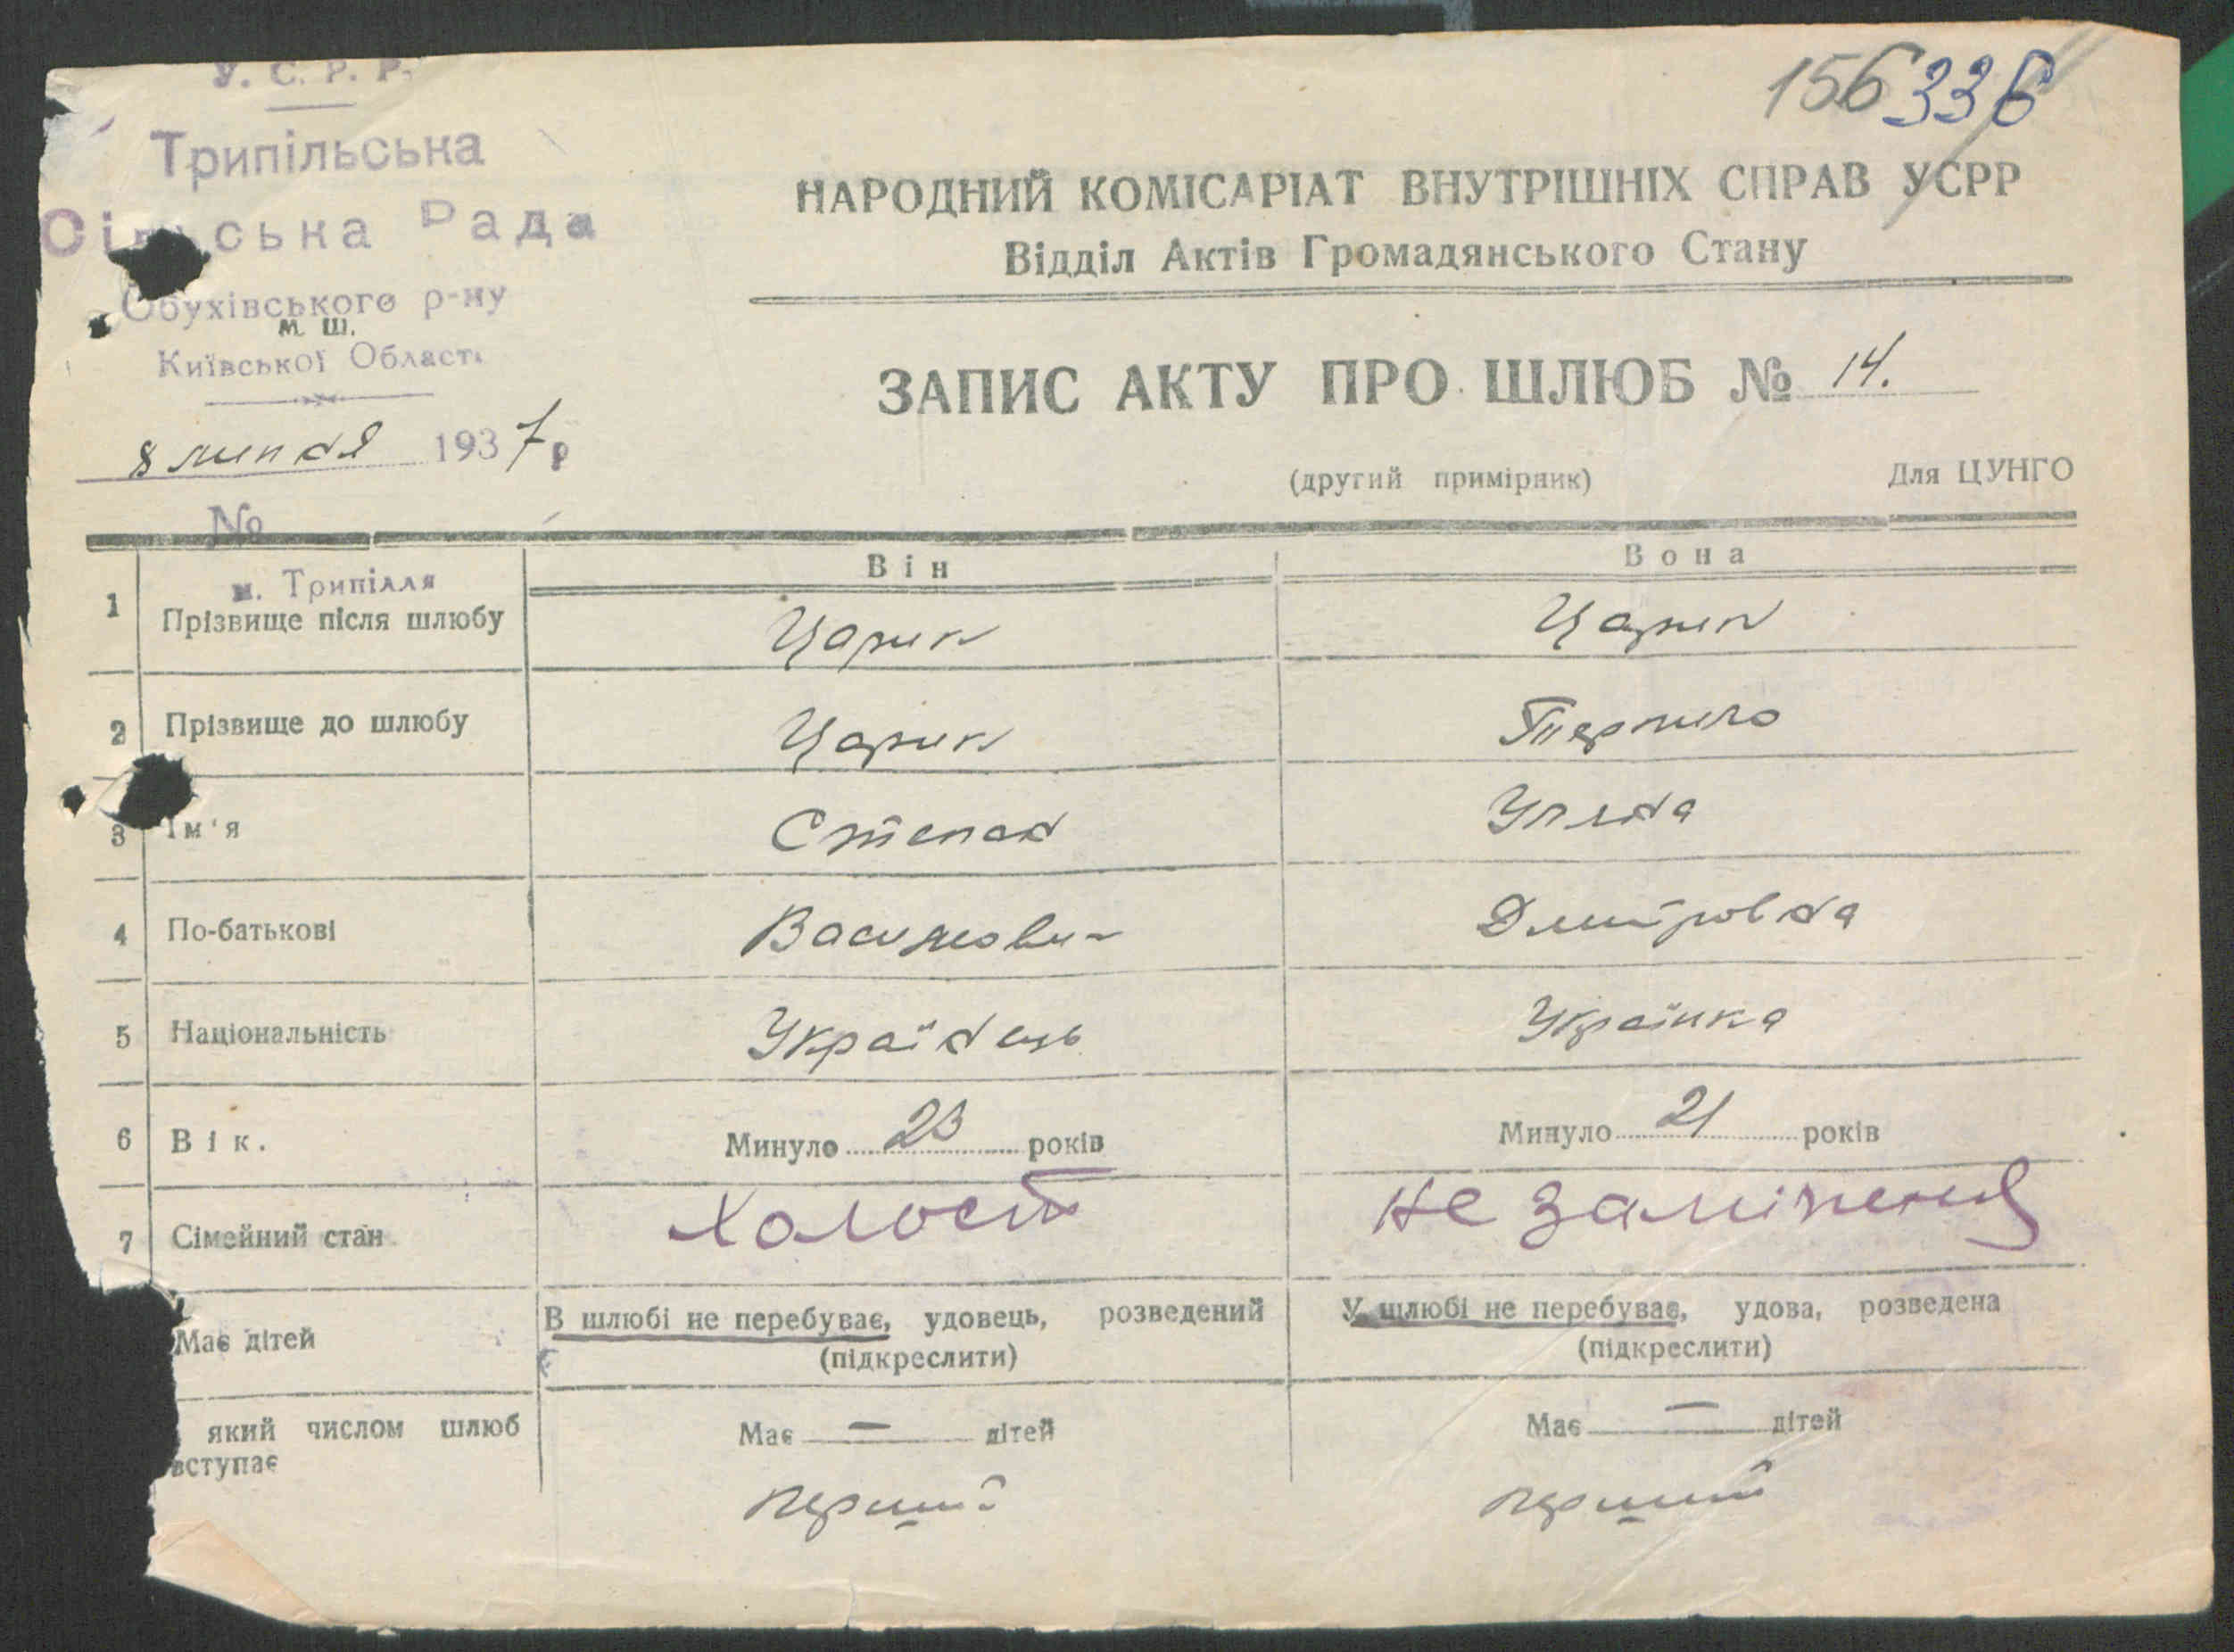 У. С. Р. Р.
156 336
Трипільська
Сільська Рада
Обухівського р-ну
м. ш.
Київської Області
8 липня 1937 р
№
НАРОДНИЙ КОМІСАРІАТ ВНУТРІШНІХ СПРАВ УСРР
Відділ Актів Громадянського Стану
ЗАПИС АКТУ ПРО ШЛЮБ № 14.
(другий примірник) Для ЦУНГО
Він Вона
м. Трипілля
1 Прізвище після шлюбу Царик Царик
2 Прізвище до шлюбу Царик Терпило
3 Ім'я Степан Уляна
4 По-батькові Васильович Дмитровна
5 Національність Українець Українка
6 Вік. Минуло 23 років Минуло 21 років
7 Сімейний стан холост не заміжня
В шлюбі не перебуває, удовець, розведений У шлюбі не перебуває, удова, розведена
Має дітей (підкреслити) (підкреслити)
який числом шлюб Має — дітей Має — дітей
вступає
перший перший